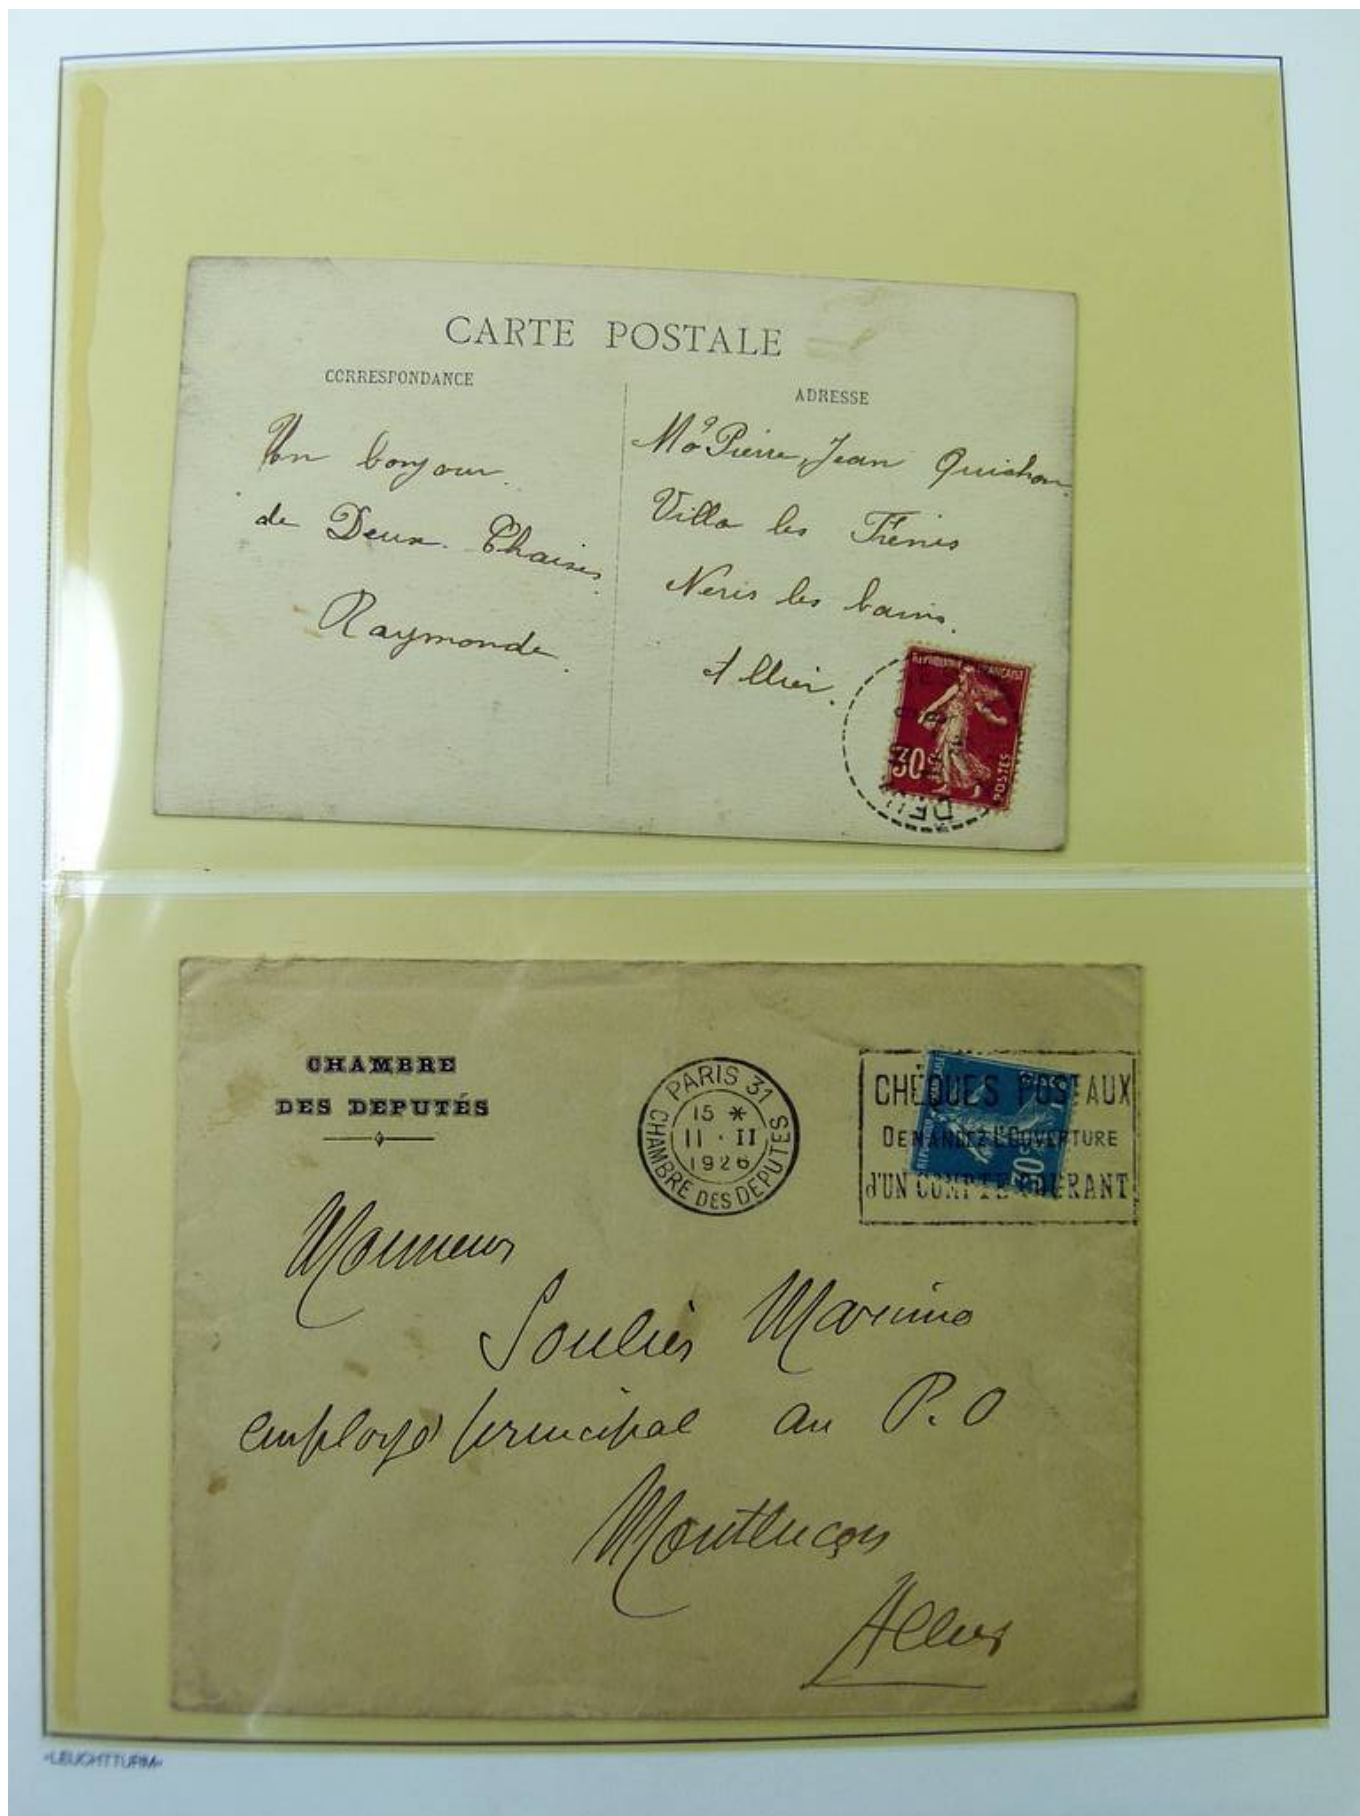 CARTE POSTALE
CORRESPONDANCE
ADRESSE
Un bonjour
de Deux Chaises
Raymonde
Pierre, Jean Quichon
Villa les
Neris les bains.
Allier.
REPUBLIQUE FRANÇAISE
30c
POSTES
DEU
CHAMBRE
DES DEPUTÉS
PARIS 31
15 *
11 · II
1926
CHAMBRE DES DEPUTES
CHÈQUES POSTAUX
DEMANDEZ L'OUVERTURE
d'UN COMPTE COURANT
30c
Monsieur
Soulier
employé principal au P.O
Montluçon
Allier
LEUCHTTURM